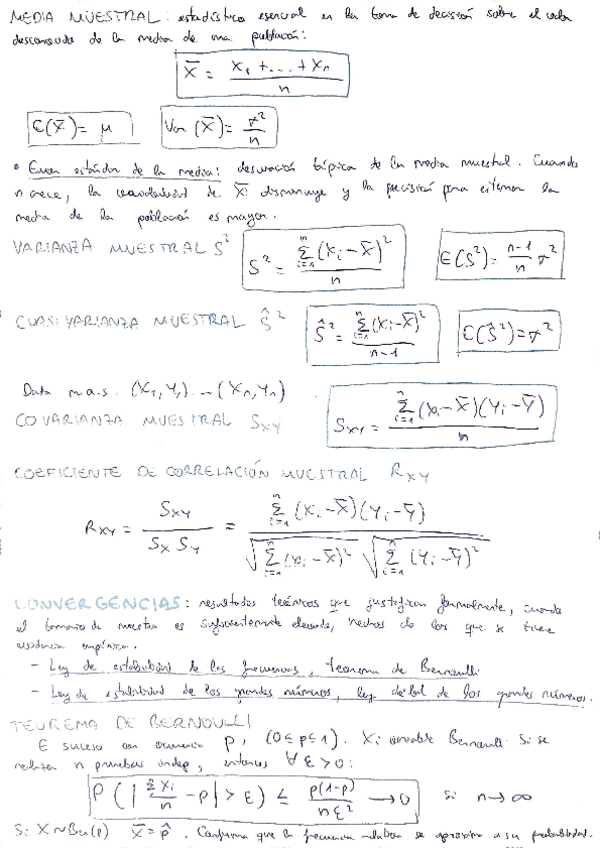 MEDIA MUESTRAL: estadístico esencial en la toma de decisión sobre el valor
desconocido de la media de una población:
X̄ = (X₁ + ... + Xₙ) / n
E(X̄) = μ    Var(X̄) = σ²/n
• Error estándar de la media: desviación típica de la media muestral. Cuando
n crece, la variabilidad de X̄ disminuye y la precisión para estimar la
media de la población es mayor.
VARIANZA MUESTRAL S²    S² = Σⁿᵢ₌₁ (Xᵢ - X̄)² / n    E(S²) = (n-1)/n σ²
CUASIVARIANZA MUESTRAL Ŝ²    Ŝ² = Σⁿᵢ₌₁ (Xᵢ - X̄)² / (n-1)    E(Ŝ²) = σ²
Dada m.a.s. (X₁,Y₁) ... (Xₙ,Yₙ)
COVARIANZA MUESTRAL Sxy    Sxy = Σⁿᵢ₌₁ (Xᵢ - X̄)(Yᵢ - Ȳ) / n
COEFICIENTE DE CORRELACIÓN MUESTRAL Rxy
Rxy = Sxy / (Sx Sy) = Σⁿᵢ₌₁ (Xᵢ - X̄)(Yᵢ - Ȳ) / (√(Σⁿᵢ₌₁ (Xᵢ - X̄)²) √(Σⁿᵢ₌₁ (Yᵢ - Ȳ)²))
CONVERGENCIAS: resultados teóricos que justifican formalmente, cuando
el tamaño de muestra es suficientemente elevado, hechos de los que se tiene
evidencia empírica.
- Ley de estabilidad de las frecuencias, teorema de Bernoulli
- Ley de estabilidad de los grandes números, ley débil de los grandes números.
TEOREMA DE BERNOULLI
E suceso con ocurrencia p, (0≤p≤1). Xᵢ variable Bernoulli. Si se
realizan n pruebas indep, entonces ∀ε>0:
P(|Σ Xᵢ / n - p| > ε) ≤ p(1-p) / nε² → 0    si n → ∞
Si X ~ Ber(p) X̄ = p̂. Confirma que la frecuencia relativa se aproxima a su probabilidad.